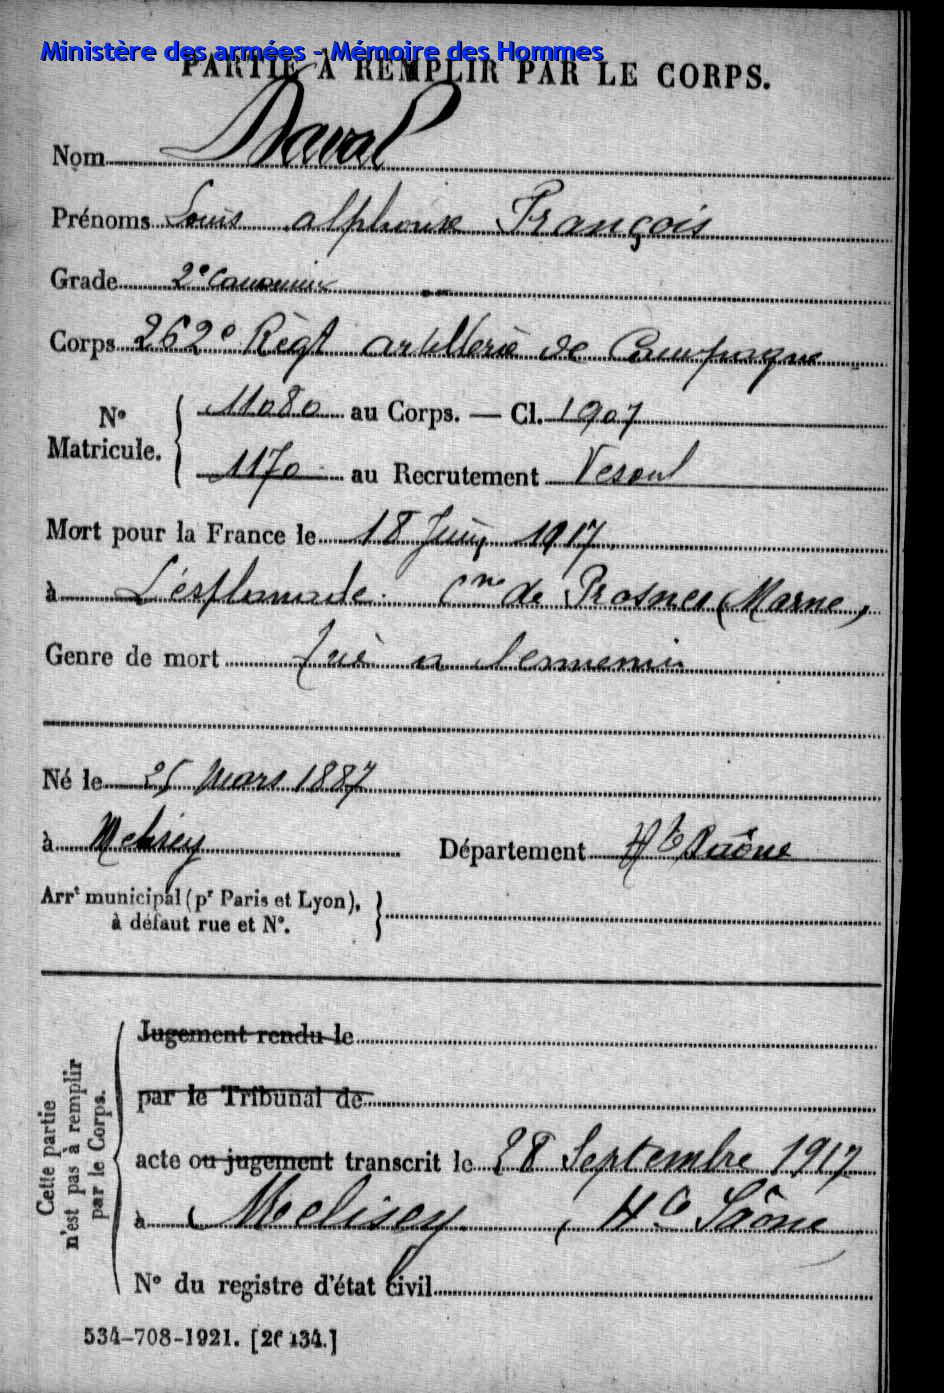 Ministère des armées - Mémoire des Hommes
PARTIE À REMPLIR PAR LE CORPS.
Nom Daval
Prénoms Louis alphonse François
Grade 2e Canonnier
Corps 262e Régt artillerie de Campagne
No Matricule. 11080 au Corps. — Cl. 1907
1170 au Recrutement Vesoul
Mort pour la France le 18 Juin 1917
à L'esplanade Cne de Prosnes (Marne)
Genre de mort Tué a l'ennemi
Né le 25 Mars 1887
à Melisey Département Hte Saône
Arrt municipal (pr Paris et Lyon),
à défaut rue et No.
Cette partie
n'est pas à remplir
par le Corps.
Jugement rendu le
par le Tribunal de
acte ou jugement transcrit le 28 Septembre 1917
à Melisey, Hte Saône
No du registre d'état civil
534-708-1921. [26134.]